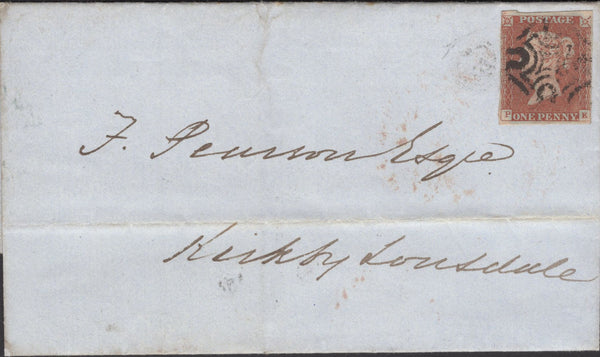 POSTAGE
ONE PENNY
F. Pearson Esqre
Kirkby Lonsdale